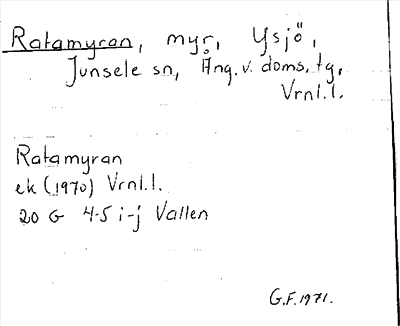 Ratamyran, myr, Ysjö,
Junsele sn, Ång. v. doms. tg,
Vrnl. l.
Ratamyran
ek (1970) Vrnl. l.
20 G 4-5 i-j Vallen
G.F. 1971.